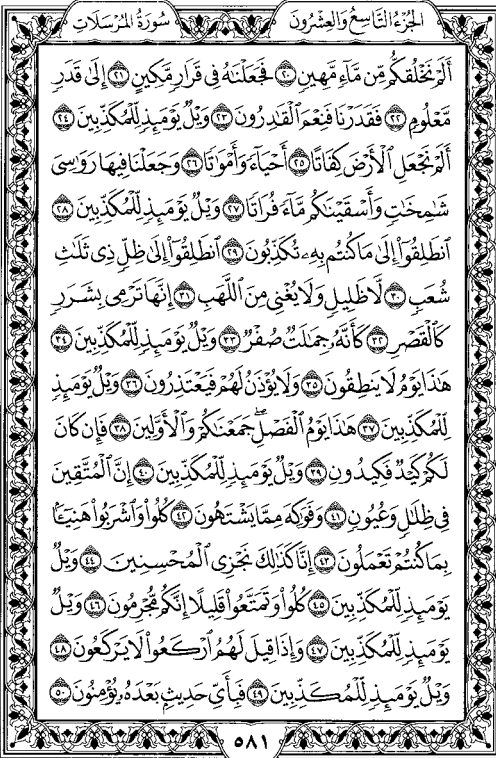 سُورَةُ المُرْسَلَاتِ الجُزْءُ التَّاسِعُ وَالعِشْرُونَ
أَلَمْ نَخْلُقكُّم مِّن مَّآءٍ مَّهِينٍ ٢٠ فَجَعَلْنَٰهُ فِى قَرَارٍ مَّكِينٍ ٢١ إِلَىٰ قَدَرٍ
مَّعْلُومٍ ٢٢ فَقَدَرْنَا فَنِعْمَ ٱلْقَٰدِرُونَ ٢٣ وَيْلٌ يَوْمَئِذٍ لِّلْمُكَذِّبِينَ ٢٤
أَلَمْ نَجْعَلِ ٱلْأَرْضَ كِفَاتًا ٢٥ أَحْيَآءً وَأَمْوَٰتًا ٢٦ وَجَعَلْنَا فِيهَا رَوَٰسِىَ
شَٰمِخَٰتٍ وَأَسْقَيْنَٰكُم مَّآءً فُرَاتًا ٢٧ وَيْلٌ يَوْمَئِذٍ لِّلْمُكَذِّبِينَ ٢٨
ٱنطَلِقُوٓا۟ إِلَىٰ مَا كُنتُم بِهِۦ تُكَذِّبُونَ ٢٩ ٱنطَلِقُوٓا۟ إِلَىٰ ظِلٍّ ذِى ثَلَٰثِ
شُعَبٍ ٣٠ لَّا ظَلِيلٍ وَلَا يُغْنِى مِنَ ٱللَّهَبِ ٣١ إِنَّهَا تَرْمِى بِشَرَرٍ
كَٱلْقَصْرِ ٣٢ كَأَنَّهُۥ جِمَٰلَتٌ صُفْرٌ ٣٣ وَيْلٌ يَوْمَئِذٍ لِّلْمُكَذِّبِينَ ٣٤
هَٰذَا يَوْمُ لَا يَنطِقُونَ ٣٥ وَلَا يُؤْذَنُ لَهُمْ فَيَعْتَذِرُونَ ٣٦ وَيْلٌ يَوْمَئِذٍ
لِّلْمُكَذِّبِينَ ٣٧ هَٰذَا يَوْمُ ٱلْفَصْلِ ۖ جَمَعْنَٰكُمْ وَٱلْأَوَّلِينَ ٣٨ فَإِن كَانَ
لَكُمْ كَيْدٌ فَكِيدُونِ ٣٩ وَيْلٌ يَوْمَئِذٍ لِّلْمُكَذِّبِينَ ٤٠ إِنَّ ٱلْمُتَّقِينَ
فِى ظِلَٰلٍ وَعُيُونٍ ٤١ وَفَوَٰكِهَ مِمَّا يَشْتَهُونَ ٤٢ كُلُوا۟ وَٱشْرَبُوا۟ هَنِيٓـًٔۢا
بِمَا كُنتُمْ تَعْمَلُونَ ٤٣ إِنَّا كَذَٰلِكَ نَجْزِى ٱلْمُحْسِنِينَ ٤٤ وَيْلٌ
يَوْمَئِذٍ لِّلْمُكَذِّبِينَ ٤٥ كُلُوا۟ وَتَمَتَّعُوا۟ قَلِيلًا إِنَّكُم مُّجْرِمُونَ ٤٦ وَيْلٌ
يَوْمَئِذٍ لِّلْمُكَذِّبِينَ ٤٧ وَإِذَا قِيلَ لَهُمُ ٱرْكَعُوا۟ لَا يَرْكَعُونَ ٤٨
وَيْلٌ يَوْمَئِذٍ لِّلْمُكَذِّبِينَ ٤٩ فَبِأَىِّ حَدِيثٍۭ بَعْدَهُۥ يُؤْمِنُونَ ٥٠
٥٨١